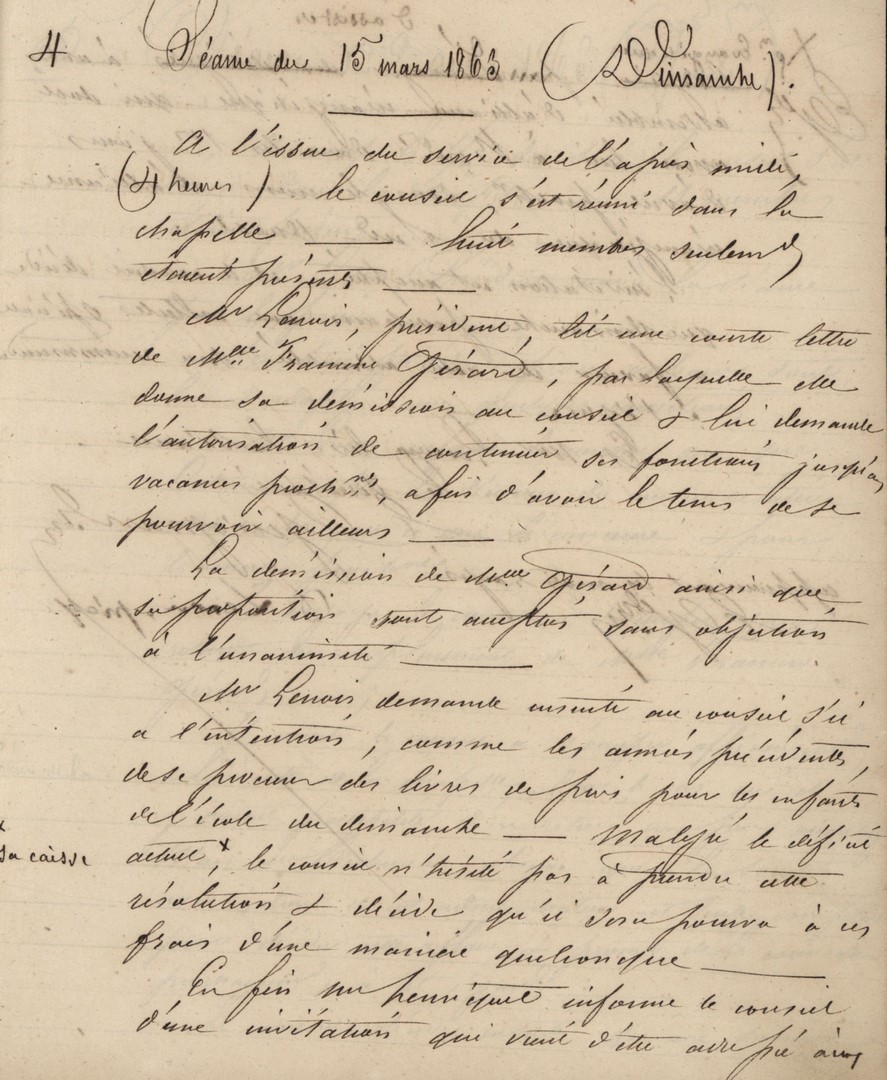 4 Séance du 15 mars 1863 (Dimanche).
A l'issue du service de l'après midi,
(4 heures) le conseil s'est réuni dans la
chapelle — huit membres seulemt
étaient présents —
Mr Lenoir, président, lit une courte lettre
de Mlle Francine Gérard, par laquelle elle
donne sa démission au conseil & lui demande
l'autorisation de continuer ses fonctions jusqu'aux
vacances prochnes, afin d'avoir le tems de se
pourvoir ailleurs —
La démission de Mlle Gérard ainsi que
sa proposition sont acceptés sans objection
à l'unanimité —
Mr Lenoir demande ensuite au conseil s'il
a l'intention, comme les années précédentes,
de se procurer des livres de prix pour les enfants
de l'école du dimanche — Malgré le déficit
actuel x, le conseil n'hésite pas à prendre cette
x
sa caisse
résolution & décide qu'il sera pourvu à ces
frais d'une manière quelconque —
En fin mr henriquet informe le conseil
d'une invitation qui vient d'être adressée à